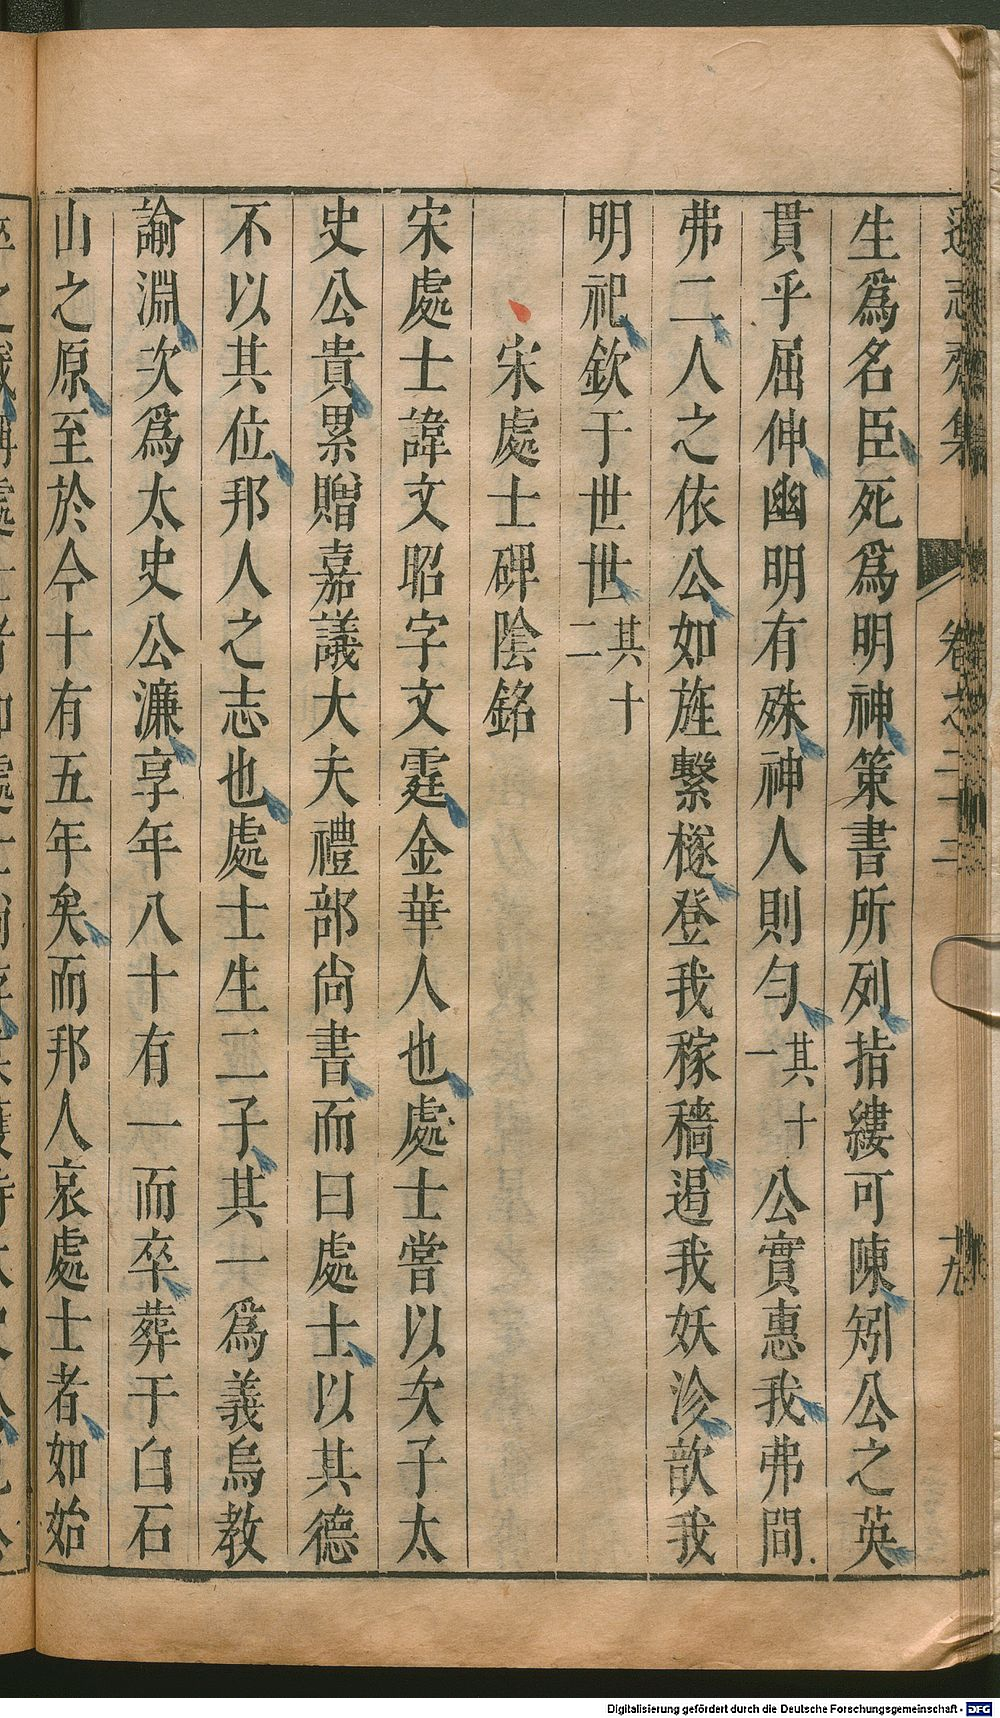 生爲名臣死爲明神策書所列指縷可陳矧公之英
貫乎屈伸幽明有殊神人則勻其十一公實惠我弗間
弗二人之依公如旌繫檖登我稼穡遏我妖沴歆我
明祀欽于世世其十二
宋處士碑陰銘
宋處士諱文昭字文霆金華人也處士嘗以次子太
史公貴累贈嘉議大夫禮部尙書而曰處士以其德
不以其位邦人之志也處士生二子其一爲義烏教
諭淵次爲太史公濂享年八十有一而卒葬于白石
山之原至於今十有五年矣而邦人哀處士者如始
卷之二十二
十九
Digitalisierung gefördert durch die Deutsche Forschungsgemeinschaft - DFG